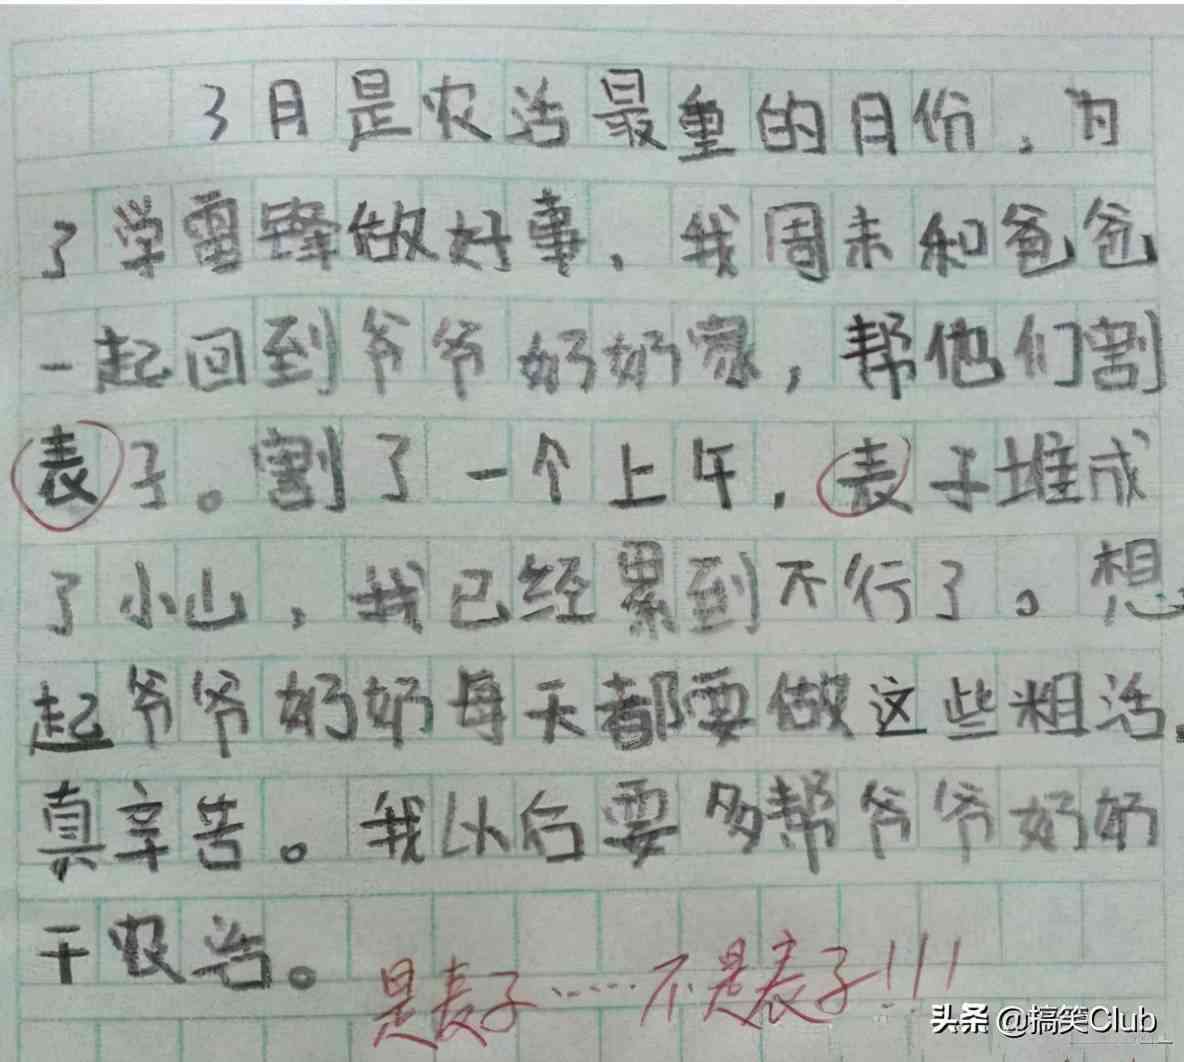 3月是农活最重的月份，为
了学雷锋做好事，我周末和爸爸
一起回到爷爷奶奶家，帮他们割
表子。割了一个上午，表子堆成
了小山，我已经累到不行了。想
起爷爷奶奶每天都要做这些粗活，
真辛苦。我以后要多帮爷爷奶奶
干农活。
是麦子……不是表子!!!
头条 @搞笑Club